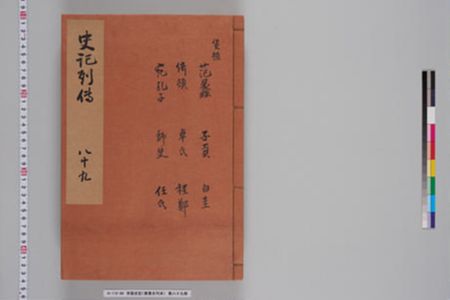 貨殖
范蠡 子貢 白圭
猗頓 卓氏 程鄭
宛孔氏 師史 任氏
史記列傳
八十九